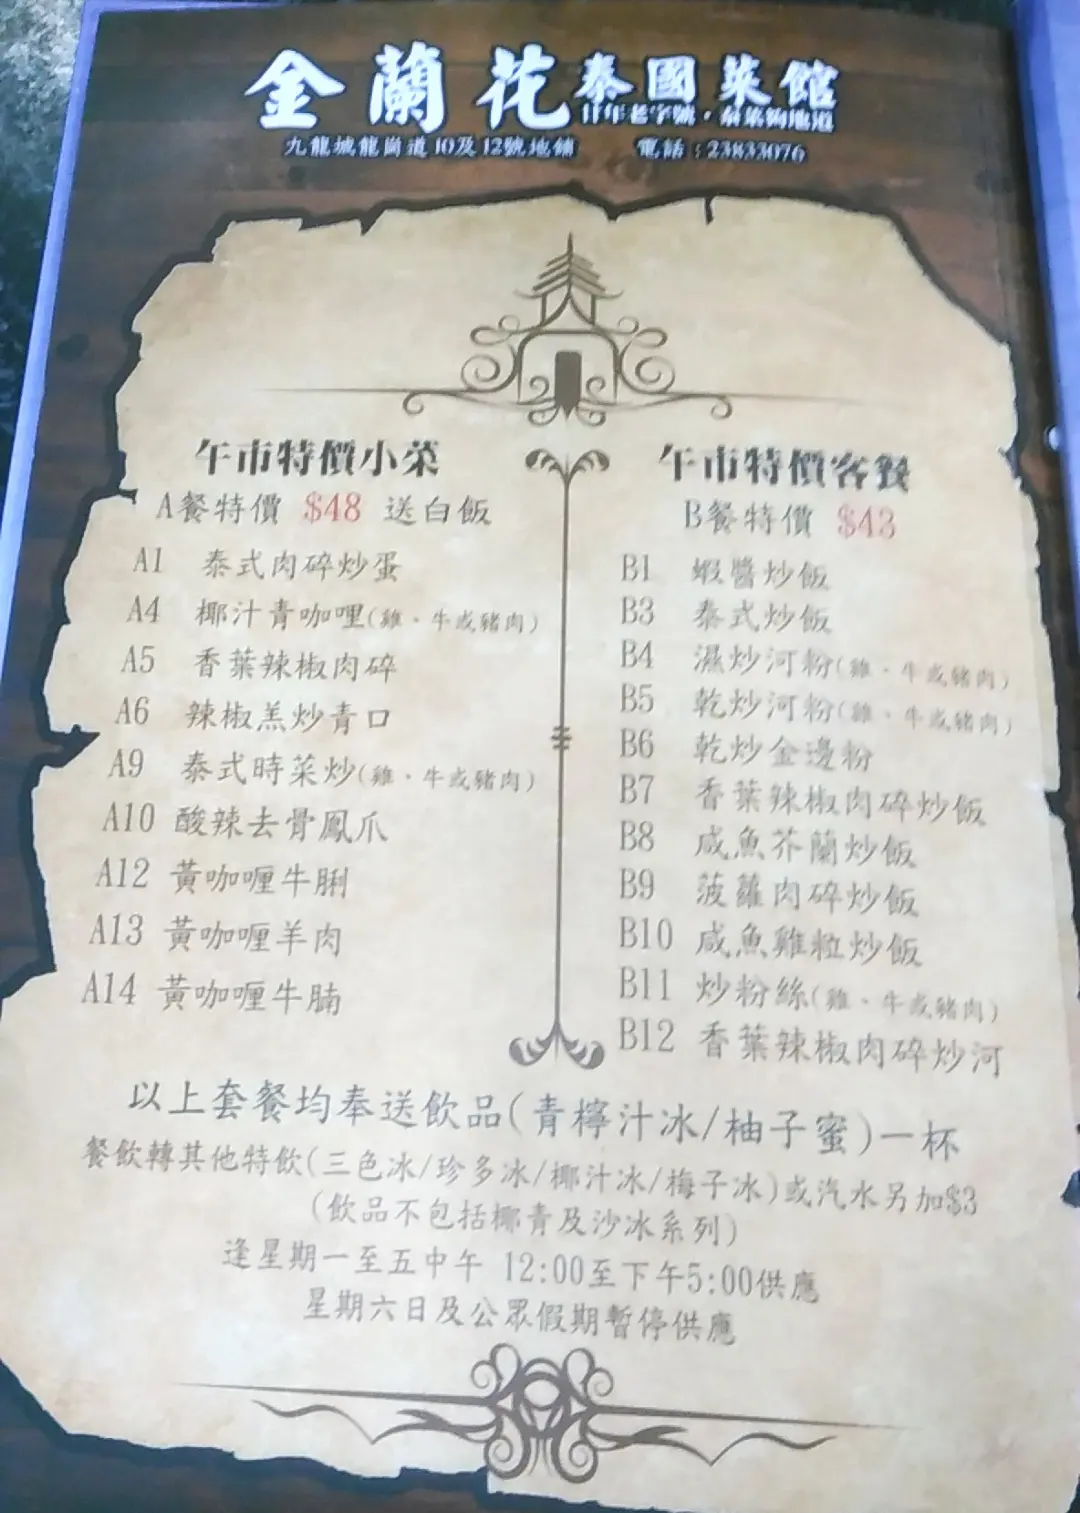 金蘭花泰國菜館
廿年老字號，泰菜夠地道
九龍城龍崗道10及12號地舖 電話：23833076
午市特價小菜
A餐特價 $48 送白飯
A1 泰式肉碎炒蛋
A4 椰汁青咖哩(雞、牛或豬肉)
A5 香葉辣椒肉碎
A6 辣椒羔炒青口
A9 泰式時菜炒(雞、牛或豬肉)
A10 酸辣去骨鳳爪
A12 黃咖喱牛脷
A13 黃咖喱羊肉
A14 黃咖喱牛腩
午市特價客餐
B餐特價 $43
B1 蝦醬炒飯
B3 泰式炒飯
B4 濕炒河粉(雞、牛或豬肉)
B5 乾炒河粉(雞、牛或豬肉)
B6 乾炒金邊粉
B7 香葉辣椒肉碎炒飯
B8 咸魚芥蘭炒飯
B9 菠蘿肉碎炒飯
B10 咸魚雞粒炒飯
B11 炒粉絲(雞、牛或豬肉)
B12 香葉辣椒肉碎炒河
以上套餐均奉送飲品(青檸汁冰/柚子蜜)一杯
餐飲轉其他特飲(三色冰/珍多冰/椰汁冰/梅子冰)或汽水另加$3
(飲品不包括椰青及沙冰系列)
逢星期一至五中午 12:00至下午5:00供應
星期六日及公眾假期暫停供應